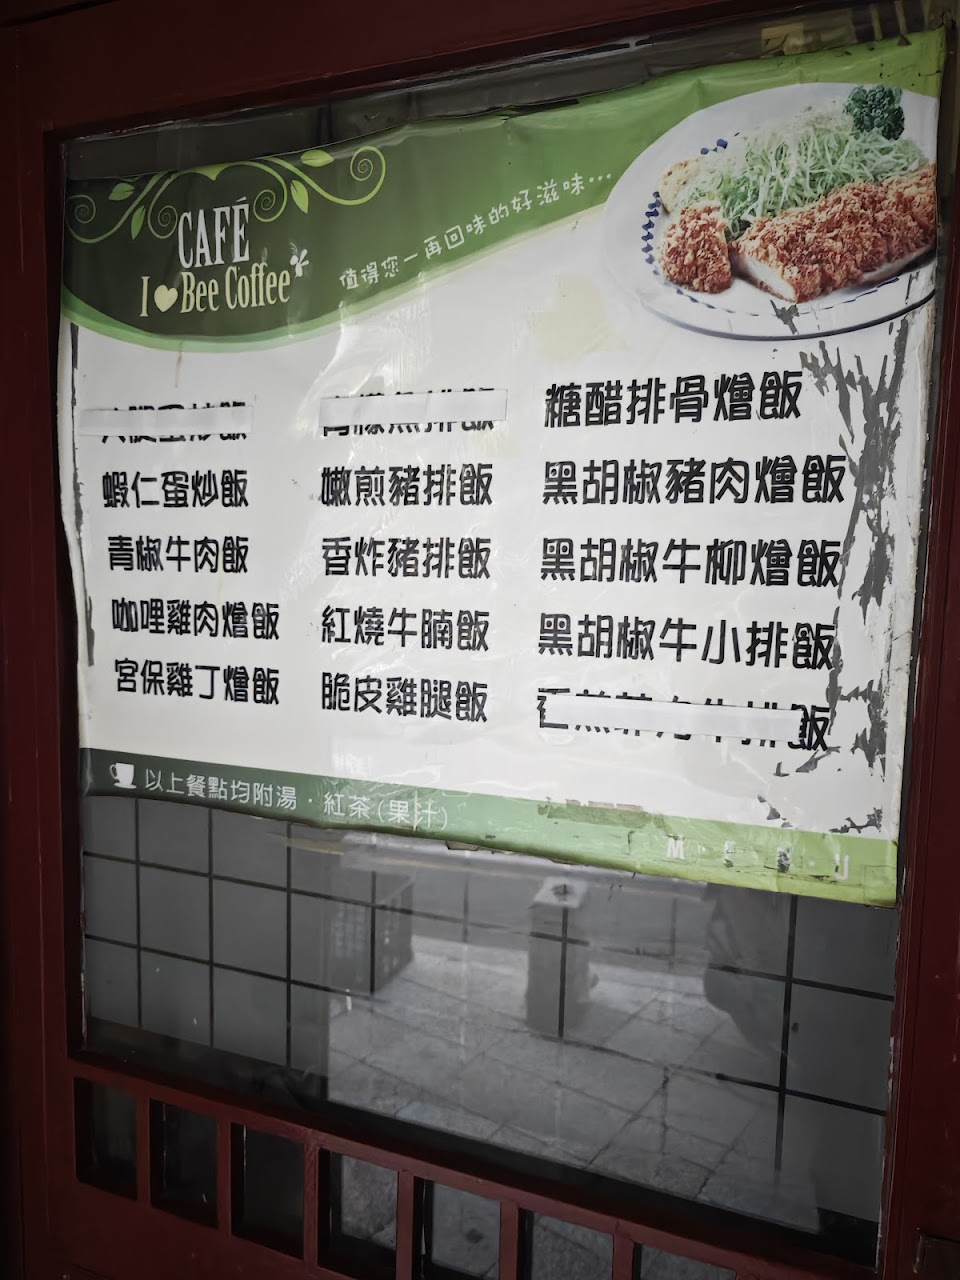 CAFÉ
I Bee Coffee
值得您一再回味的好滋味…
蝦仁蛋炒飯
青椒牛肉飯
咖哩雞肉燴飯
宮保雞丁燴飯
嫩煎豬排飯
香炸豬排飯
紅燒牛腩飯
脆皮雞腿飯
糖醋排骨燴飯
黑胡椒豬肉燴飯
黑胡椒牛柳燴飯
黑胡椒牛小排飯
以上餐點均附湯．紅茶(果汁)